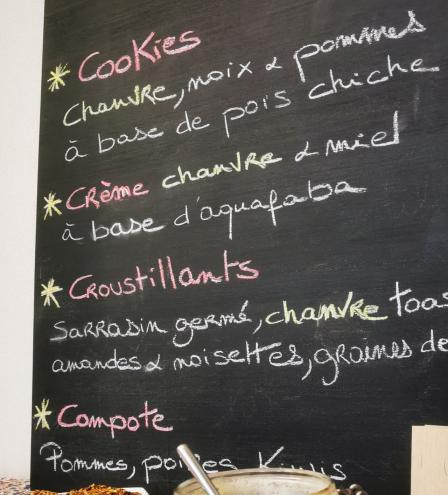 * Cookies
Chanvre, noix & pommes
à base de pois chiche
* Crème chanvre & miel
à base d'aquafaba
* Croustillants
Sarrasin germé, chanvre toas
amandes & noisettes, graines de
* Compote
Pommes, poires Kiwis